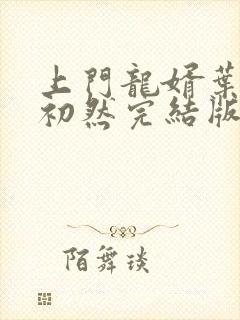 上門龍婿葉
初然完結版
陌舞琰